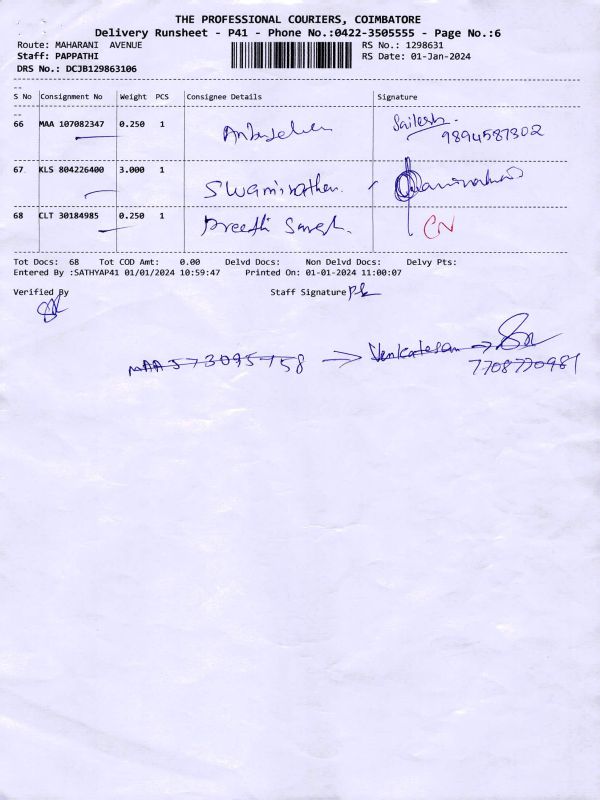 THE PROFESSIONAL COURIERS, COIMBATORE
Delivery Runsheet - P41 - Phone No.:0422-3505555 - Page No.:6
Route: MAHARANI AVENUE RS No.: 1298631
Staff: PAPPATHI RS Date: 01-Jan-2024
DRS No.: DCJB129863106
S No Consignment No Weight PCS Consignee Details Signature
66 MAA 107082347 0.250 1 Sailesh
9894587302
67 KLS 804226400 3.000 1 Swaminathan
68 CLT 30184985 0.250 1 Preethi CN
Tot Docs: 68 Tot COD Amt: 0.00 Delvd Docs: Non Delvd Docs: Delvy Pts:
Entered By :SATHYAP41 01/01/2024 10:59:47 Printed On: 01-01-2024 11:00:07
Verified By Staff Signature
MAA 573095758 → Venkatesan →
7708770981